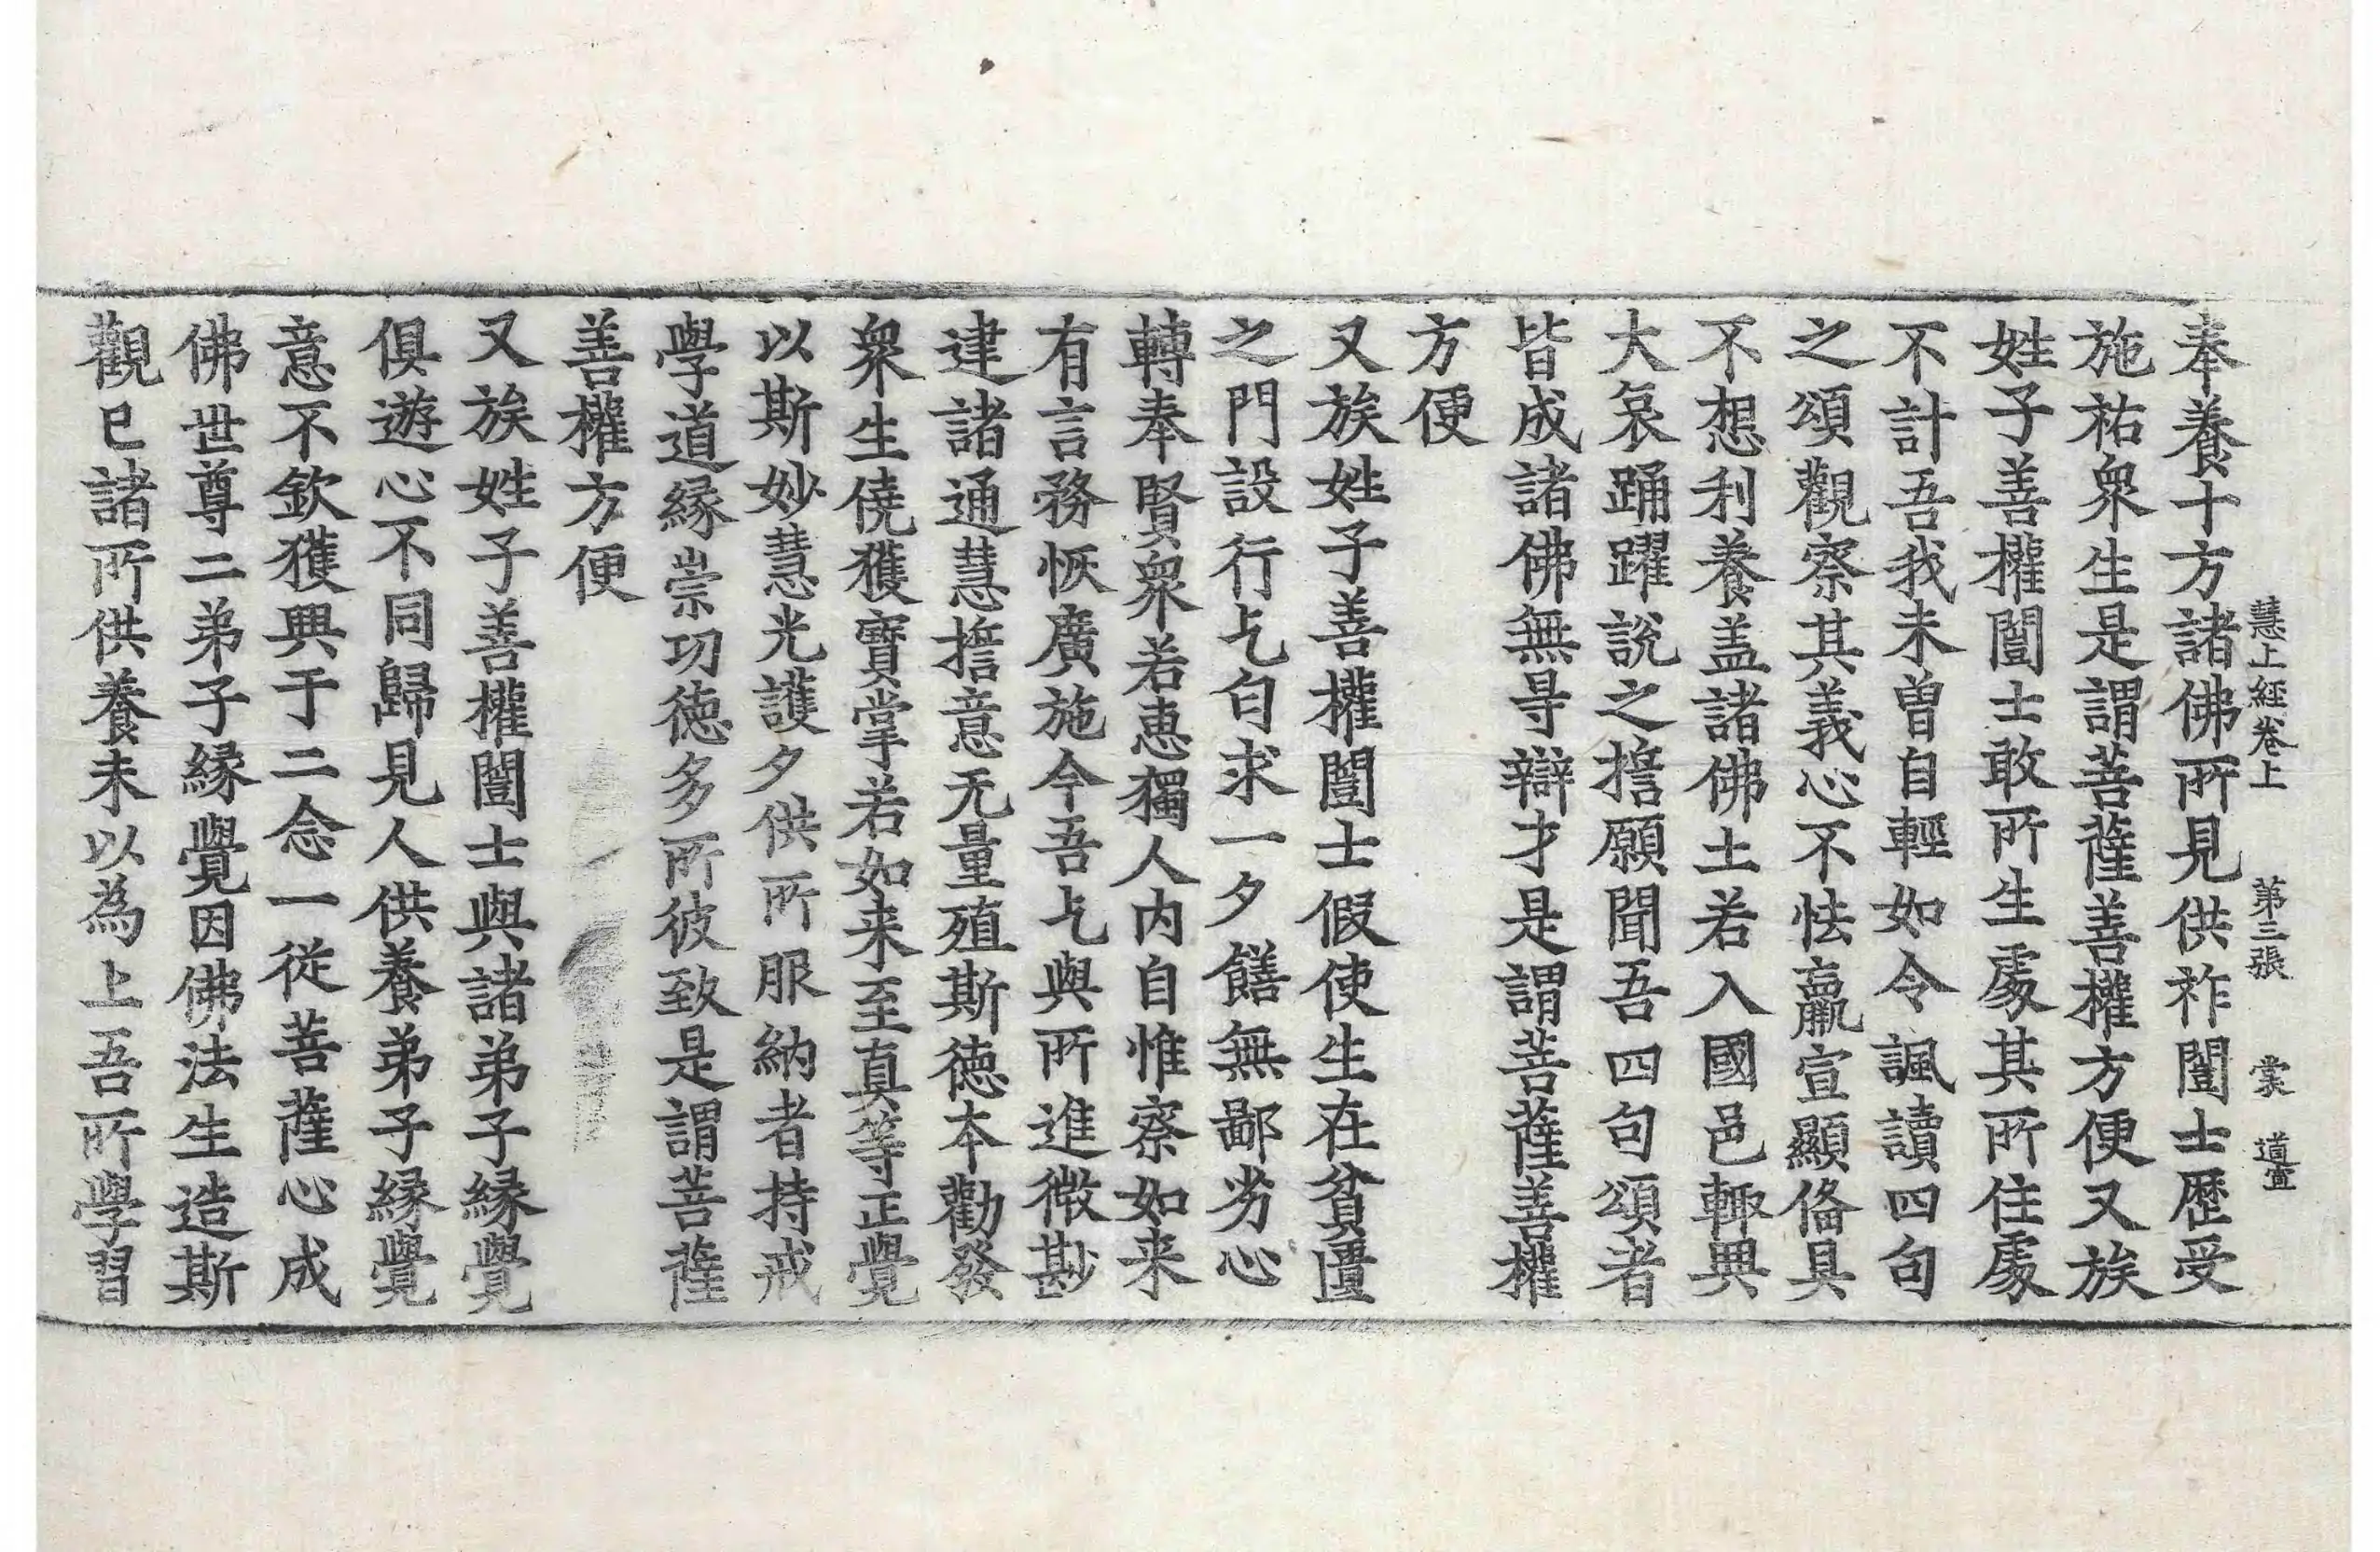 慧上經卷上　第三張　裳　道宣
奉養十方諸佛所見供祚闓士歷受
施祐衆生是謂菩薩善權方便又族
姓子善權闓士敢所生處其所住處
不計吾我未曽自輕如令諷讀四句
之頌觀察其義心不怯羸宣顯俻具
不想利養盖諸佛土若入國邑輙興
大哀踊躍說之擔願聞吾四句頌者
皆成諸佛無㝵辯才是謂菩薩善權
方便
又族姓子善權闓士假使生在貧匱
之門設行乞匃求一夕饍無鄙劣心
轉奉賢衆若恵獨人内自惟察如来
有言務恢廣施今吾乞與所進微尠
建諸通慧擔意无量殖斯徳本勸發
衆生僥獲寶掌若如来至真等正覺
以斯妙慧光護夕供所服納者持戒
學道縁崇功徳多所彼致是謂菩薩
善權方便
又族姓子善權闓士與諸弟子縁覺
俱遊心不同歸見人供養弟子縁覺
意不欽獲興于二念一従菩薩心成
佛世尊二弟子縁覺因佛法生造斯
觀已諸所供養未以為上吾所學習